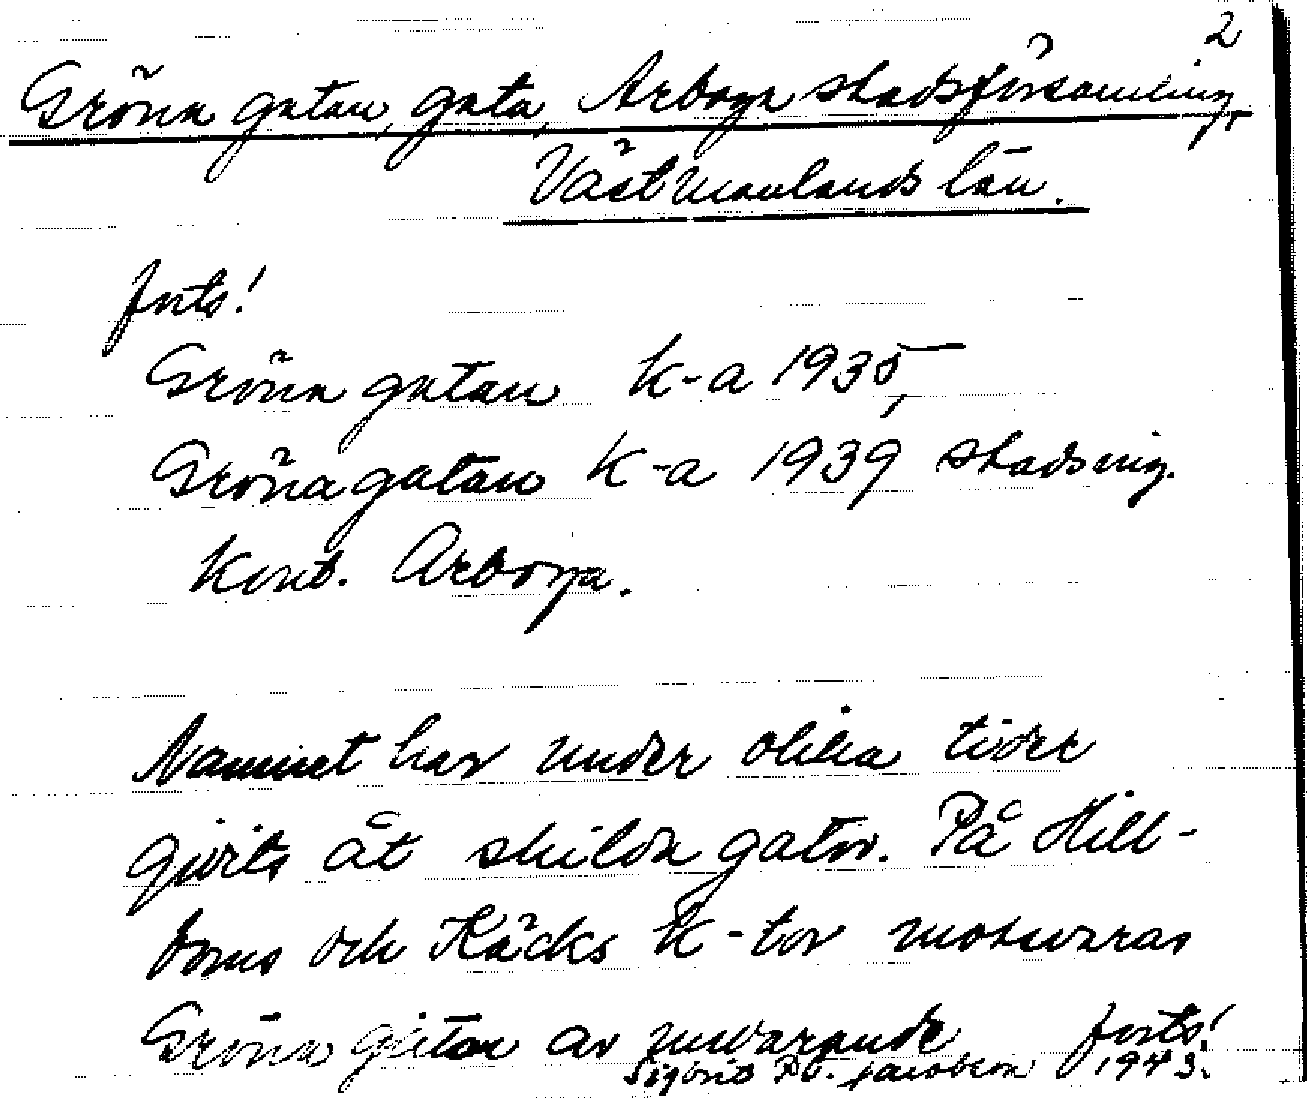 2
Gröna gatan, gata, Arboga stadsförsamling,
Västmanlands län.
forts!
Gröna gatan k-a 1935,
Grönagatan k-a 1939 stadsing.
kont. Arboga.
Namnet har under olika tider
givits åt skilda gator. På Hill-
boms och Käcks k-tor motsvaras
Gröna gatan av nuvarande forts!
Sigbrid Jacobson 1943.